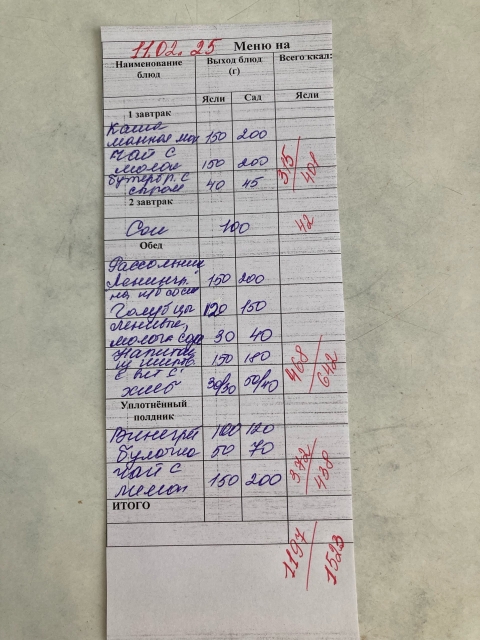 11.02.25 Меню на
Наименование блюд Выход блюд (г) Всего ккал:
Ясли Сад Ясли
1 завтрак
Каша
манная мол 150 200
Чай с
молок 150 200 315/401
бутербр. с
сыром 40 45
2 завтрак
Сок 100 42
Обед
Рассольник
Ленингр. 150 200
на к/б
Голубцы 120 150
ленивые,
молочн 30 40
Напиток
150 180 468/642
с вит С
хлеб 30/30 50/40
Уплотнённый
полдник
Винегрет 100 120
булочка 50 70 372/438
Чай с
лимон 150 200
ИТОГО
1197/1523